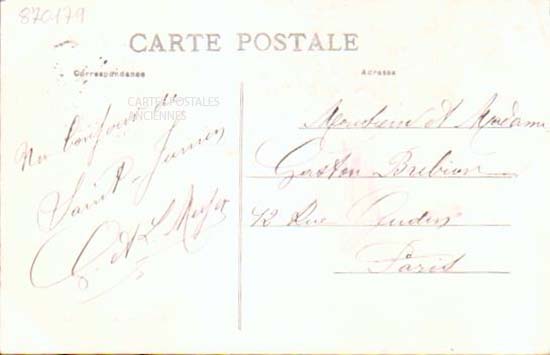 870179
CARTE POSTALE
Correspondance
Adresse
CARTES POSTALES
ANCIENNES
Un bonjour de
Saint-James
Monsieur et Madame
Gaston Brebion
12 Rue
Paris